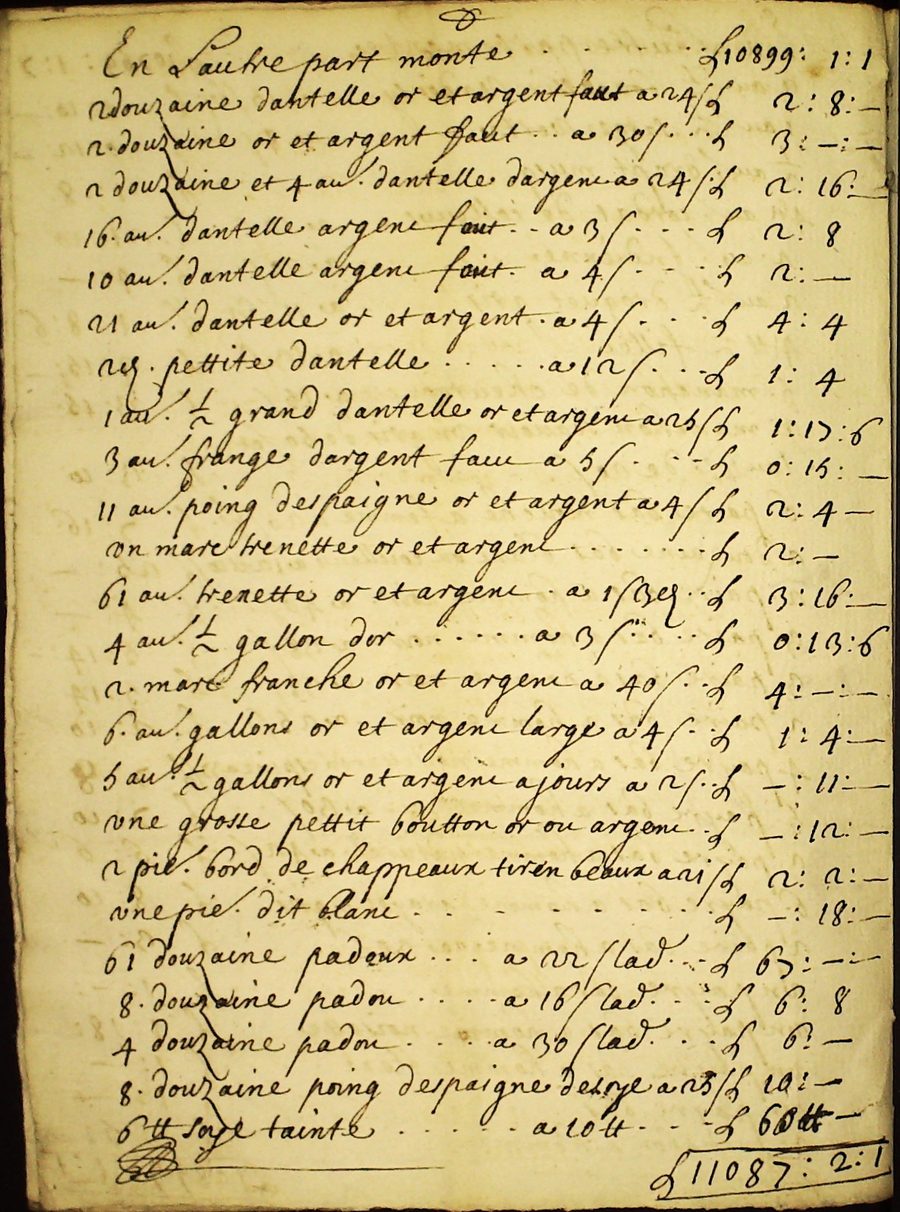 En Lautre part monte . . . . . . . £ 10899 : 1 : 1
2 douzaine dantelle or et argent faut a 24 s £ 2 : 8 : —
2 . douzaine or et argent faut . . a 30 s . . . £ 3 : — : —
2 douzaine et 4 au. dantelle dargent a 24 s . £ 2 : 16 : —
16 . au. dantelle argent faut . . a 3 s . . . £ 2 : 8
10 au. dantelle argent faut . a 4 s . . . £ 2 : —
21 au. dantelle or et argent . a 4 s . . . £ 4 : 4
2 . pettite dantelle . . . . . a 12 s . . . £ 1 : 4
1 au. ½ grand dantelle or et argent a 25 s £ 1 : 17 : 6
3 au. frange dargent faut a 5 s . . . £ 0 : 15 : —
11 au. poing despaigne or et argent a 4 s £ 2 : 4 —
vn marc trenette or et argent . . . . . . . £ 2 : —
61 au. trenette or et argent . a 1 s 3 . . £ 3 : 16 : —
4 au. ½ gallon dor . . . . . . a 3 s . . . . £ 0 : 13 : 6
2 . marc franche or et argent a 40 s . . £ 4 : — : —
6 . au. gallons or et argent large a 4 s . . £ 1 : 4 : —
5 au. ½ gallons or et argent a jours a 2 s . . £ — : 11 : —
vne grosse pettit boutton or ou argent . . £ — : 12 : —
2 pie. bord de chappeaux tiren beaux a 21 s £ 2 : 2 : —
vne pie. dit blanc . . . . . . . . £ — : 18 : —
61 douzaine padoux . . . a 22 s lad. . . £ 67 : — : —
8 . douzaine padou . . . . a 16 s lad. . . . £ 6 : 8
4 douzaine padou . . . . a 30 s lad. . . . £ 6 : —
8 . douzaine poing despaigne de soye a 25 s £ 10 : —
6 tt soye tainte . . . . . . a 10 tt . . . £ 60 tt —
£ 11087 : 2 : 1